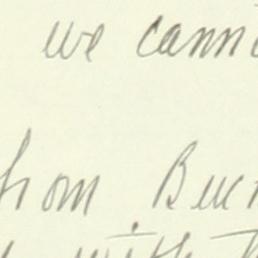 we cann
from Buck
with